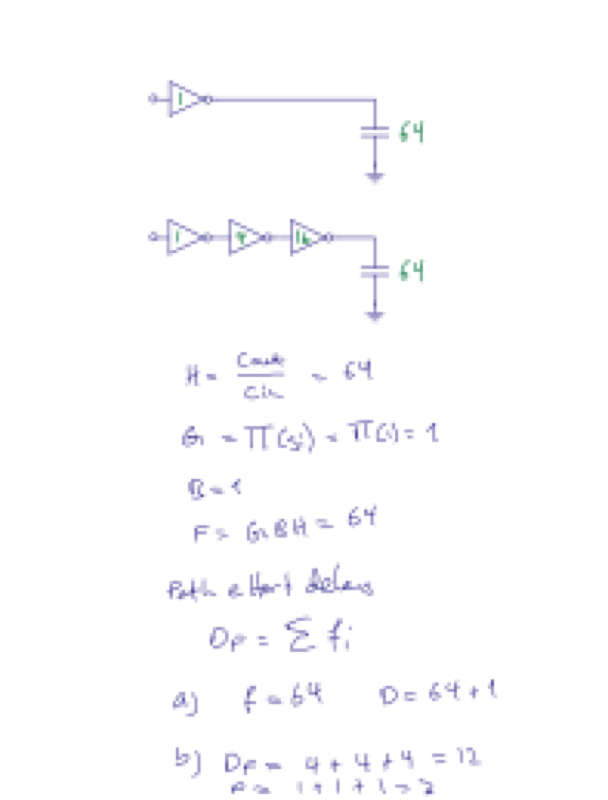 1
64
1 4 16
64
H = Cout / Cin = 64
G = Π(gi) = Π(1) = 1
B = 1
F = GBH = 64
Path effort delay
DF = Σ fi
a) f = 64 D = 64 + 1
b) DF = 4 + 4 + 4 = 12
P = 1 + 1 + 1 = 3